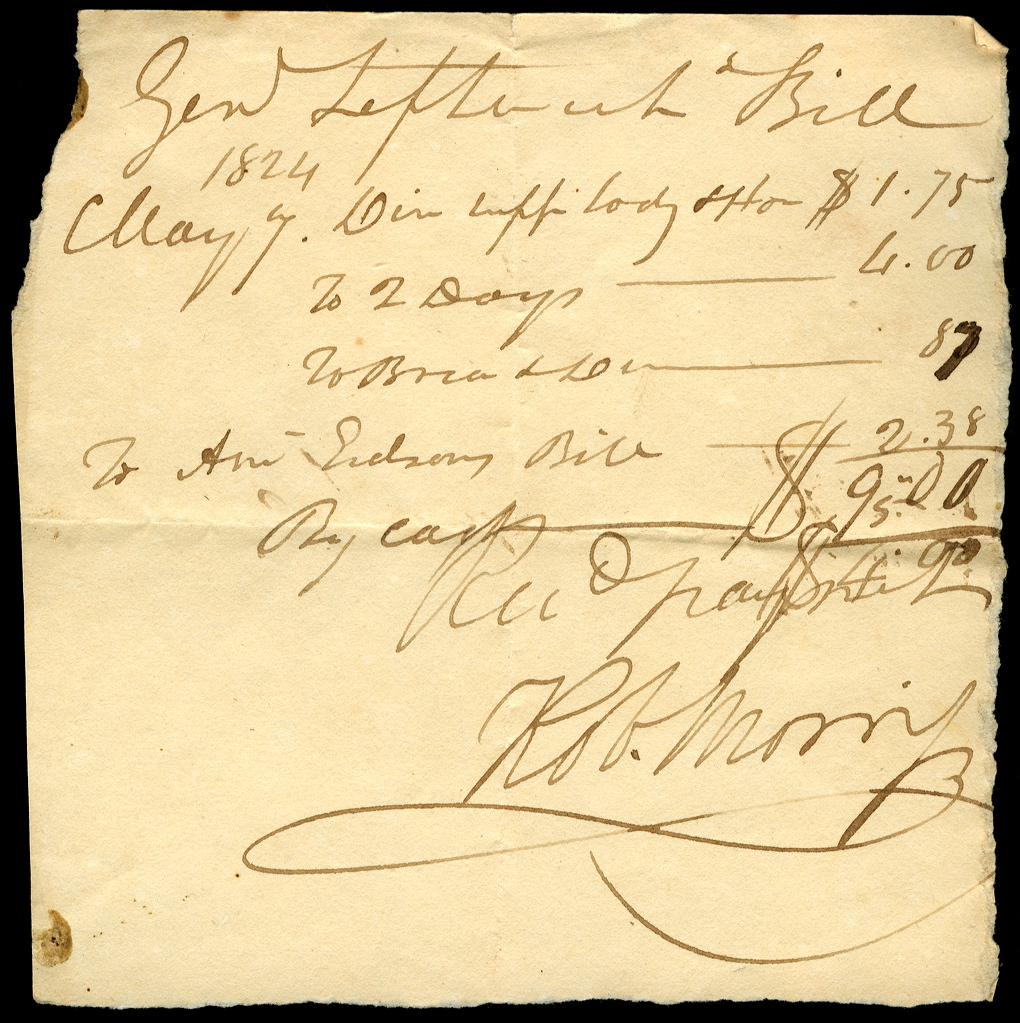 Genl Leftwich's Bill
1824
May 7. Din supp lodg & Hor $1.75
To 2 Days 4.00
To Brea & Din 87
To Ami Eidsons Bill $ 2.38
$ 9.00
By cash 5.
$ 4.00
Recd payment
Rob. Morris